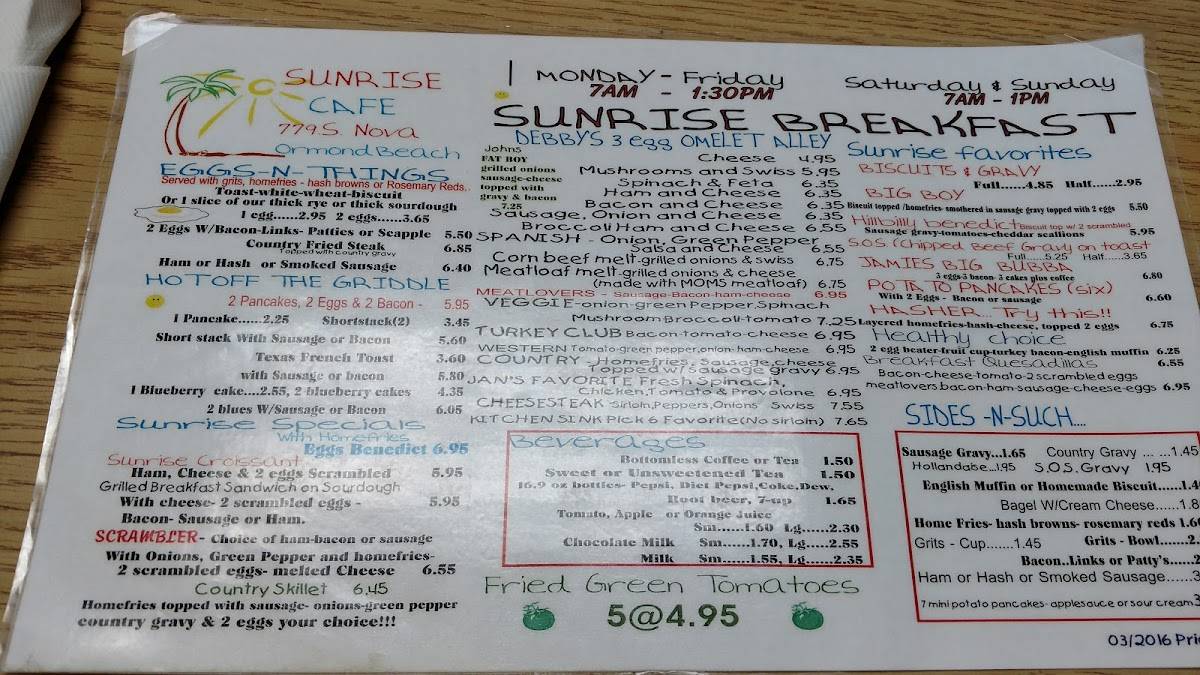 SUNRISE
CAFE
779 S. Nova
Ormond Beach
EGGS-N-THINGS
Served with grits, homefries - hash browns or Rosemary Reds.
Toast-white-wheat-biscuit
Or 1 slice of our thick rye or thick sourdough
1 egg......2.95 2 eggs......3.65
2 Eggs W/Bacon-Links- Patties or Scapple 5.50
Country Fried Steak 6.85
Topped with country gravy
Ham or Hash or Smoked Sausage 6.40
HOT OFF THE GRIDDLE
2 Pancakes, 2 Eggs & 2 Bacon - 5.95
1 Pancake......2.25 Shortstack(2) 3.45
Short stack With Sausage or Bacon 5.60
Texas French Toast 3.60
with Sausage or bacon 5.80
1 Blueberry cake....2.55, 2 blueberry cakes 4.35
2 blues W/Sausage or Bacon 6.05
Sunrise Specials
with Homefries
Eggs Benedict 6.95
Sunrise Croissant
Ham, Cheese & 2 eggs Scrambled 5.95
Grilled Breakfast Sandwich on Sourdough
With cheese- 2 scrambled eggs - 5.95
Bacon- Sausage or Ham.
SCRAMBLER- Choice of ham-bacon or sausage
With Onions, Green Pepper and homefries-
2 scrambled eggs- melted Cheese 6.55
Country Skillet 6.45
Homefries topped with sausage- onions-green pepper
country gravy & 2 eggs your choice!!!
MONDAY - Friday
7AM - 1:30PM
Saturday & Sunday
7AM - 1PM
SUNRISE BREAKFAST
DEBBY'S 3 egg OMELET ALLEY
Johns
FAT BOY
grilled onions
sausage-cheese
topped with
gravy & bacon
7.25
Cheese 4.95
Mushrooms and Swiss 5.95
Spinach & Feta 6.35
Ham and Cheese 6.35
Bacon and Cheese 6.35
Sausage, Onion and Cheese 6.35
Broccoli Ham and Cheese 6.55
SPANISH - Onion, Green Pepper
Salsa and Cheese 6.55
Corn beef melt-grilled onions & swiss 6.75
Meatloaf melt-grilled onions & cheese
(made with MOMS meatloaf) 6.75
MEATLOVERS - Sausage-Bacon-ham-cheese 6.95
VEGGIE-onion-green Pepper,Spinach
Mushroom Broccoli-tomato 7.25
TURKEY CLUB Bacon-tomato-cheese 6.95
WESTERN Tomato-green pepper,onion-ham-cheese 6.95
COUNTRY - Homefries, Sausage, Cheese
Topped w/sausage gravy 6.95
JAN'S FAVORITE Fresh Spinach,
Chicken,Tomato & Provolone 6.95
CHEESESTEAK -Sirloin,Peppers,Onions Swiss 7.55
KITCHEN SINK Pick 6 Favorite(No sirloin) 7.65
Beverages
Bottomless Coffee or Tea 1.50
Sweet or Unsweetened Tea 1.50
16.9 oz bottles- Pepsi, Diet Pepsi,Coke,Dew,
Root beer, 7-up 1.65
Tomato, Apple or Orange Juice
Sm.....1.60 Lg.....2.30
Chocolate Milk Sm.....1.70, Lg.....2.55
Milk Sm.....1.55, Lg......2.35
Fried Green Tomatoes
5@4.95
Sunrise favorites
BISCUITS & GRAVY
Full......4.85 Half......2.95
BIG BOY
Biscuit topped /homefries- smothered in sausage gravy topped with 2 eggs 5.50
Hillbilly benedict Biscuit top w/ 2 scrambled
Sausage gravy-tomatoes-cheddar scallions 5.95
S.O.S. (Chipped Beef Gravy) on toast
Full......5.25 Half......3.65
JAMIES BIG BUBBA
3 eggs-3 bacon- 3 cakes plus coffee 6.80
POTATO PANCAKES (six)
With 2 Eggs - Bacon or sausage 6.60
HASHER....Try this!!
Layered homefries-hash-cheese, topped 2 eggs 6.75
Healthy choice
2 egg beater-fruit cup-turkey bacon-english muffin 6.25
Breakfast Quesadillas 6.55
Bacon-cheese-tomato-2 scrambled eggs
meatlovers.bacon-ham-sausage-cheese-eggs 6.95
SIDES -N-SUCH....
Sausage Gravy...1.65 Country Gravy ... ...1.45
Hollandaise...1.95 S.O.S. Gravy 1.95
English Muffin or Homemade Biscuit......1.4
Bagel W/Cream Cheese......1.8
Home Fries- hash browns- rosemary reds 1.6
Grits - Cup.......1.45 Grits - Bowl.......2.
Bacon..Links or Patty's......2
Ham or Hash or Smoked Sausage.....3
7 mini potato pancakes- applesauce or sour cream 3
03/2016 Pri